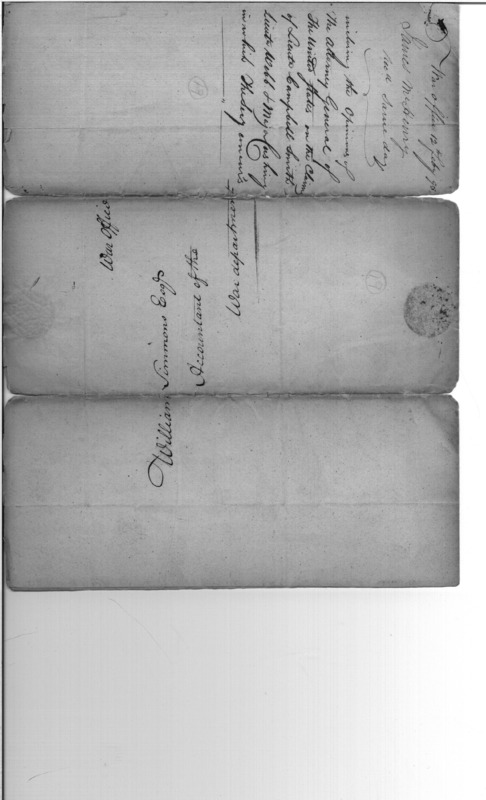 War office 12 July 96
James McHenry
recd same day
enclosing the Opinions of
The Attorney General of
The United States on the Claims
of Lieuts Campbell Smith
Lieut Webb & Major Cushing
in which he
War Office
William Simmons Esqr
Accountant of the
War department